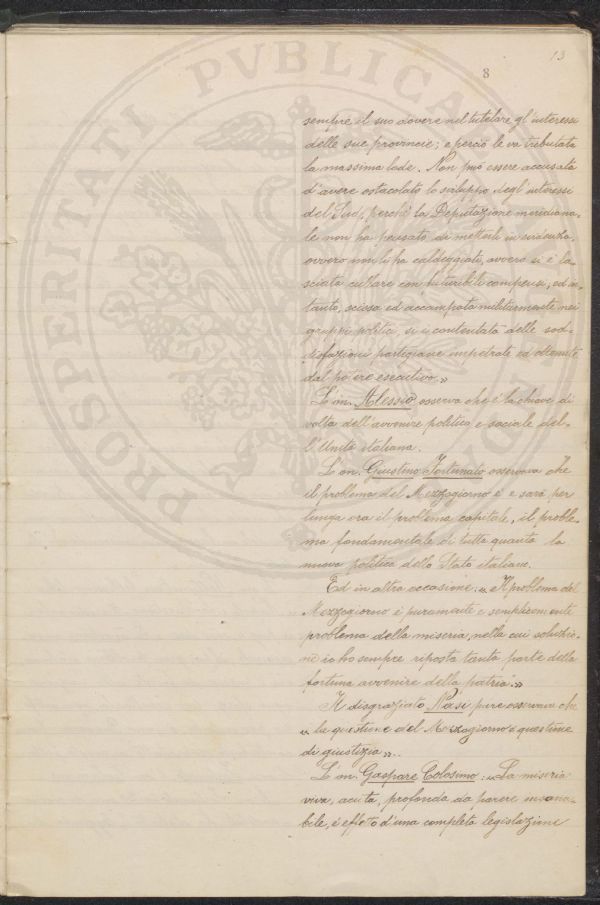 13
8
sempre il suo dovere nel tutelare gl'interessi
delle sue provincie; e perciò le va tributata
la massima lode. Non può essere accusata
d'avere ostacolato lo sviluppo degl'interessi
del Sud, perchè la Deputazione meridiona-
le non ha pensato di metterli in evidenza,
ovvero non li ha caldeggiati, ovvero si è la-
sciata cullare con futuribili compensi; ed in-
tanto, scissa ed accampata militarmente nei
gruppi politici, si è contentata delle sod-
disfazioni partigiane impetrate ed ottenute
dal potere esecutivo.»
L'on. Alessio osserva che è la chiave di
volta dell'avvenire politico e sociale del-
l'Unità italiana.
L'on. Giustino Fortunato osservava che
il problema del Mezzogiorno è e sarà per
lunga ora il problema capitale, il proble-
ma fondamentale di tutta quanta la
nuova politica dello Stato italiano.
Ed in altra occasione: «Il problema del
Mezzogiorno è puramente e semplicemente
problema della miseria, nella cui soluzio-
ne io ho sempre riposta tanta parte della
fortuna avvenire della patria.»
Il disgraziato Nasi pure osservava che
«la questione del Mezzogiorno è questione
di giustizia»..
L'on. Gaspare Colosimo: «La miseria
viva, acuta, profonda da parere insana-
bile, è effetto d'una completa legislazione
PROSPERITATI PVBLICAE